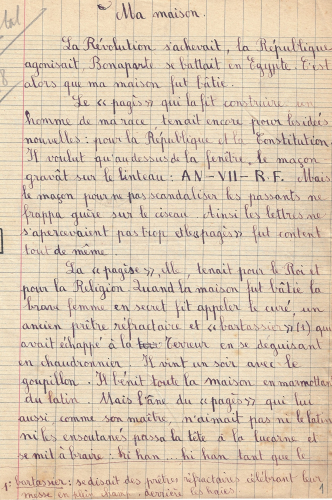 Ma maison.
La Révolution s'achevait, la République
agonisait, Bonaparte se battait en Egypte. C'est
alors que ma maison fut bâtie.
Le « pagès » qui la fit construire, un
homme de ma race, tenait encore pour les idées
nouvelles : pour la République et la Constitution.
Il voulut qu'au dessus de la fenêtre, le maçon
gravât sur le linteau : AN-VII-R.F. Mais
le maçon pour ne pas scandaliser les passants ne
frappa guère sur le ciseau. Ainsi les lettres ne
s'apercevaient pas trop et le « pagès » fut content
tout de même.
La « pagèse », elle, tenait pour le Roi et
pour la Religion. Quand la maison fut bâtie la
brave femme en secret fit appeler le curé, un
ancien prêtre réfractaire et « bartassier » (1) qui
avait échappé à la Terreur en se déguisant
en chaudronnier. Il vint un soir avec le
goupillon. Il bénit toute la maison en marmottant
du latin. Mais l'âne du « pagès » qui lui
aussi comme son maître, n'aimait pas le latin
ni les ensoutanés passa la tête à la lucarne et
se mit à braire : hi han... hi han tant que le
1° bartassier : se disait des prêtres réfractaires célébrant leur
messe en plein champ derrière les haies